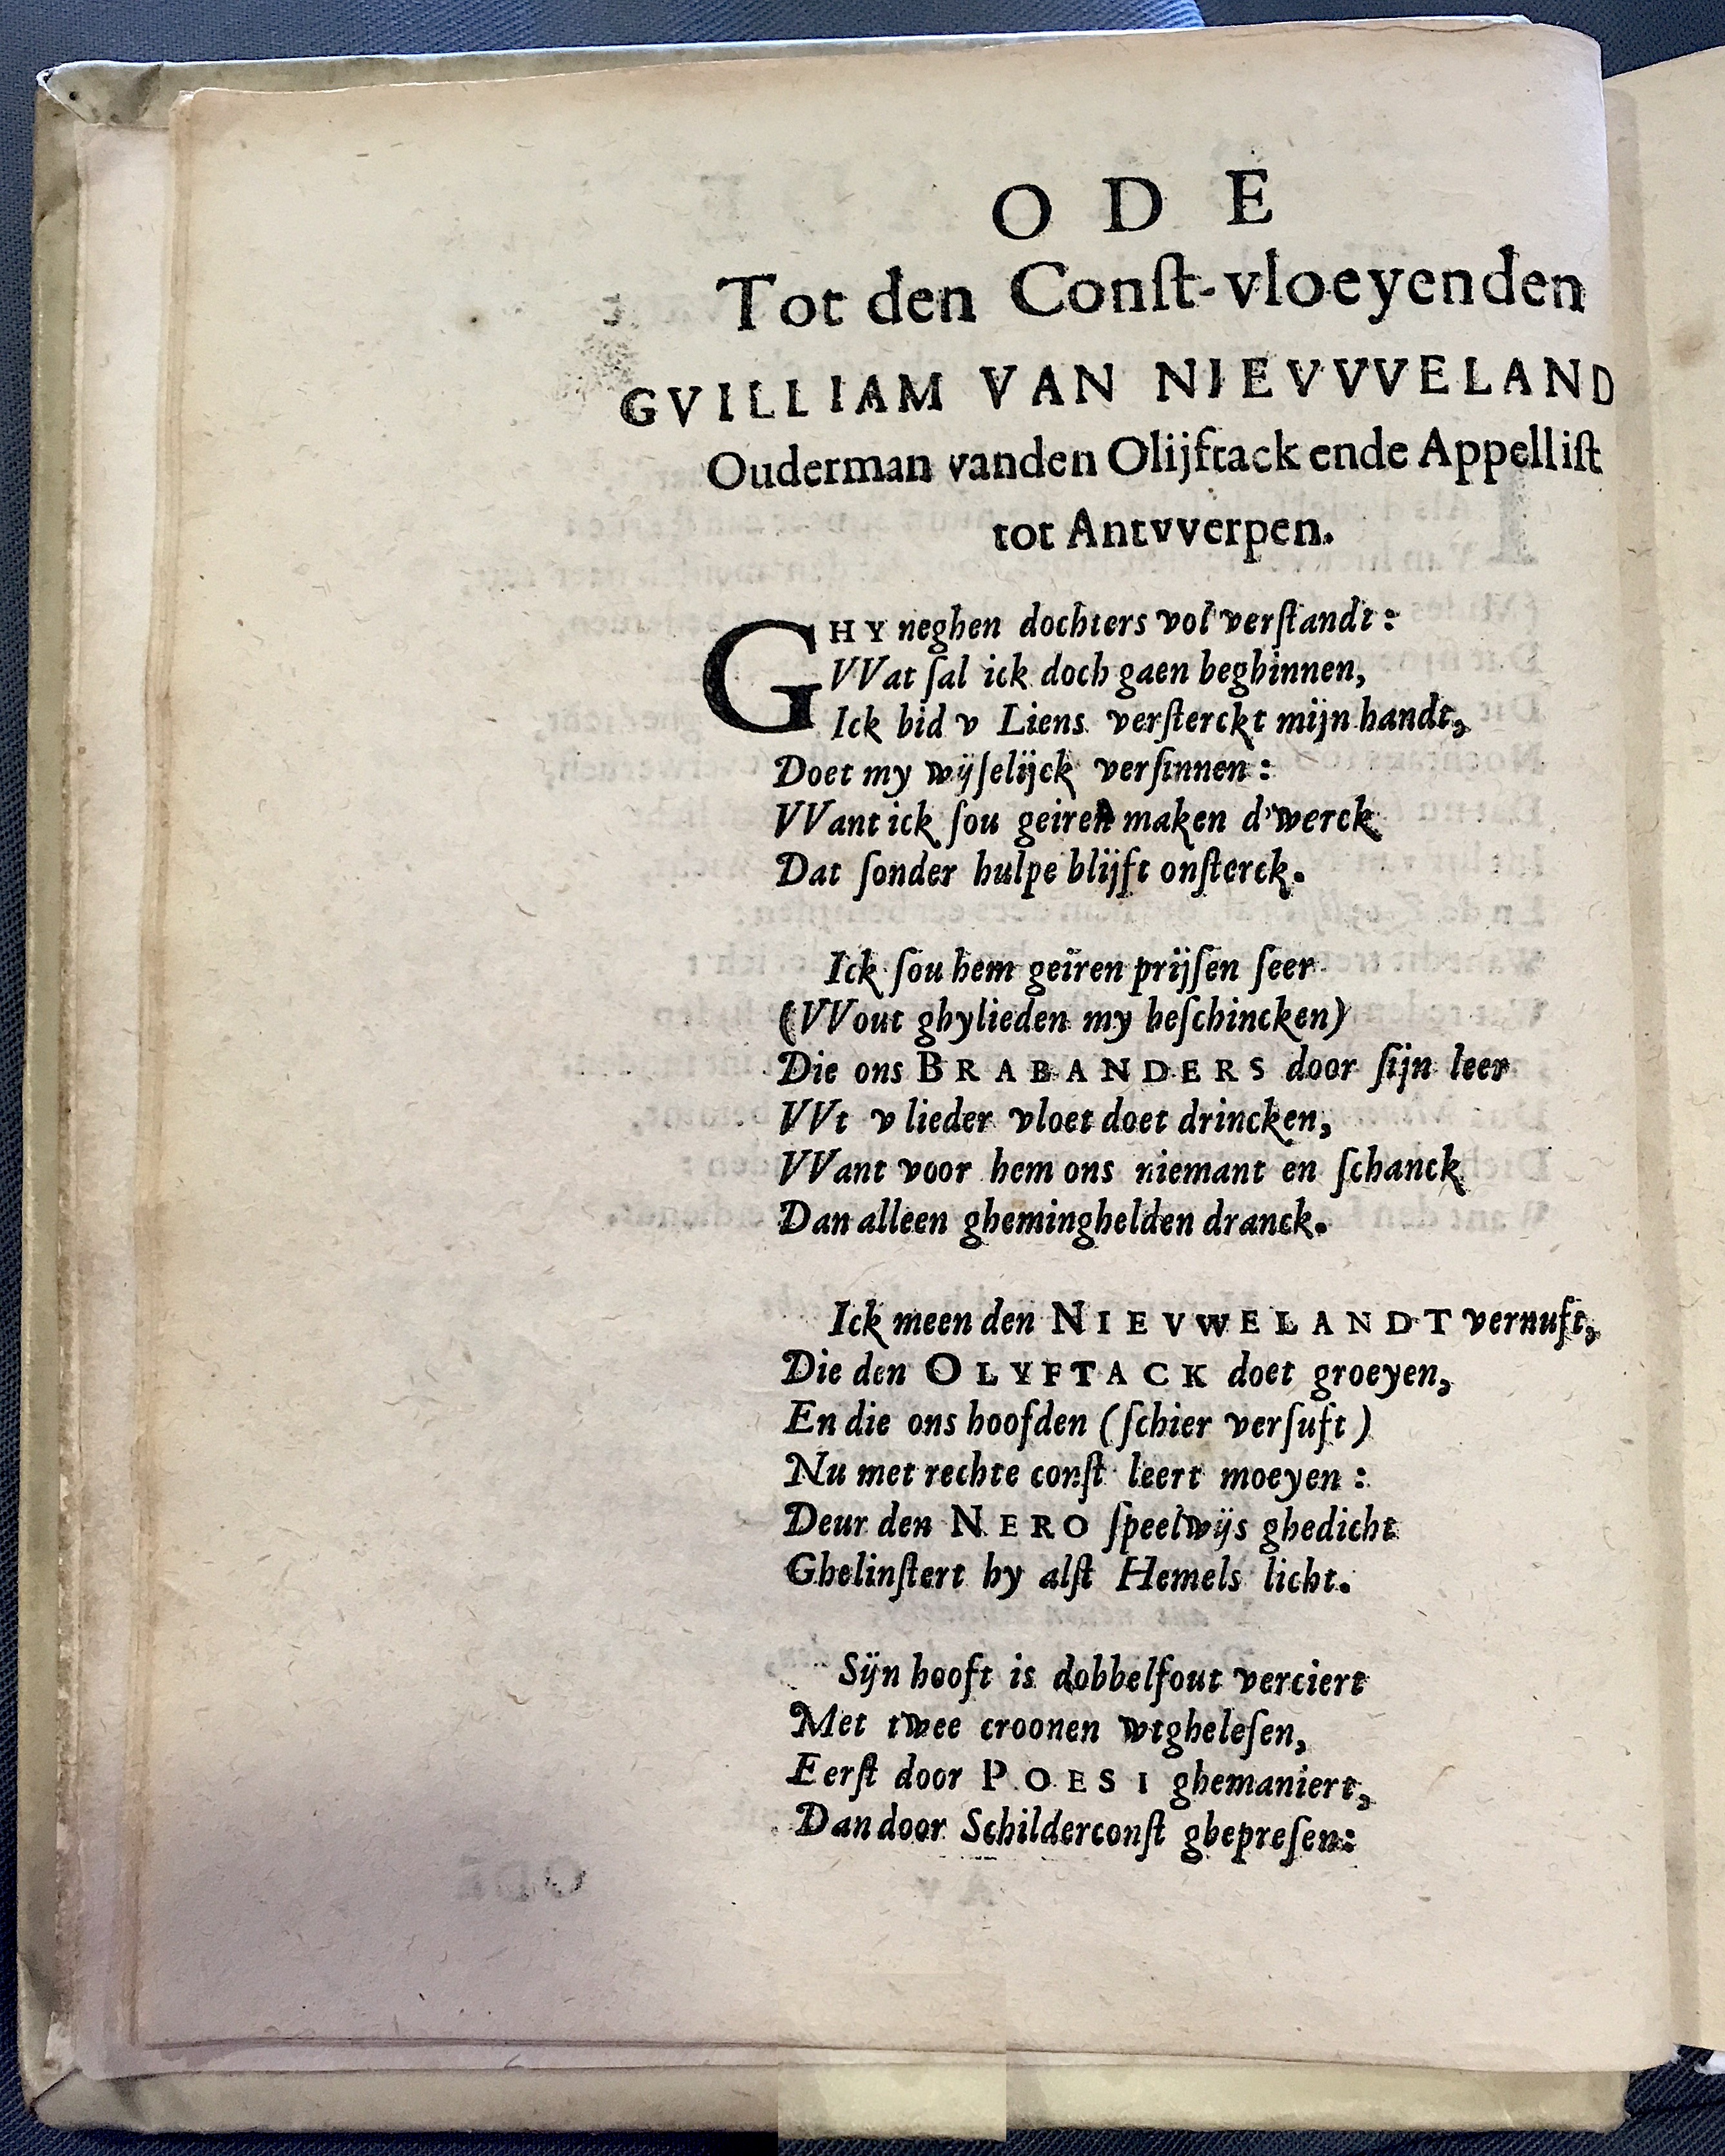 ODE
Tot den Conſt-vloeyenden
GVILLIAM VAN NIEVVVELAND
Ouderman vanden Olijftack ende Appelliſt
tot Antvverpen.
GHY neghen dochters vol verſtandt:
VVat ſal ick doch gaen beghinnen,
Ick bid v Liens verſterckt mijn handt,
Doet my wijſelijck verſinnen:
VVant ick ſou geiren maken d'werck
Dat ſonder hulpe blijft onſterck.
Ick ſou hem geiren prijſen ſeer
(VVout ghylieden my beſchincken)
Die ons BRABANDERS door ſijn leer
VVt v lieder vloet doet drincken,
VVant voor hem ons niemant en ſchanck
Dan alleen gheminghelden dranck.
Ick meen den NIEVWELANDT vernuft,
Die den OLYFTACK doet groeyen,
En die ons hoofden (ſchier verſuft)
Nu met rechte conſt leert moeyen:
Deur den NERO ſpeelwijs ghedicht
Ghelinſtert hy alſt Hemels licht.
Sijn hooft is dobbelfout verciert
Met twee croonen wtgheleſen,
Eerſt door POESI ghemaniert,
Dan door Schilderconſt ghepreſen: